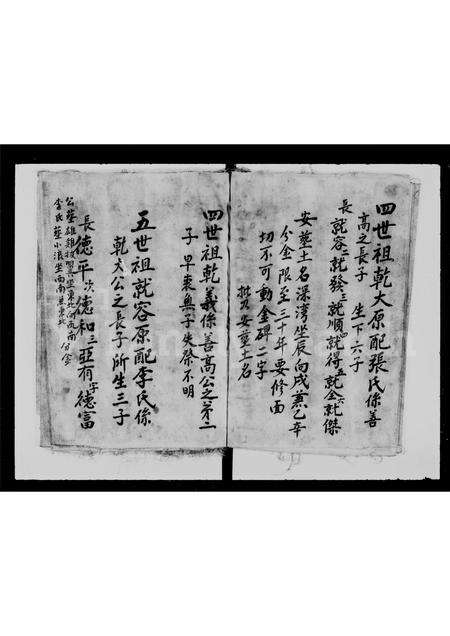 四世祖乾大原配張氏係善
高之長子 生下六子
長就容二就發三就順四就得五就全六就傑
安塟土名深湾坐辰向戌兼乙辛
分金限至三十年要修面
切不可動金碑二字
安塟土名
四世祖乾義係善高公之第二
子早丧無子失祭不明
五世祖就容原配李氏係
乾大公之長子所生三子
長德平次德和三亞有字德富
公塟雄雞拍翼坐東北向西南分金
李氏塟小浪坐西南兼東北